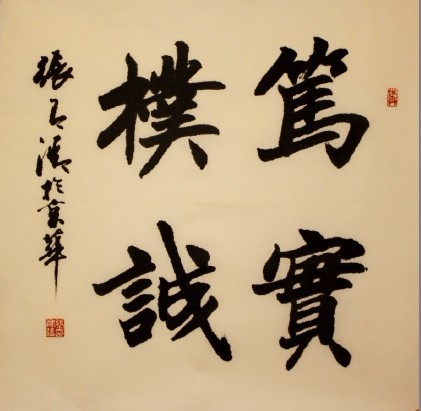 篤實
樸誠
張又清於京華